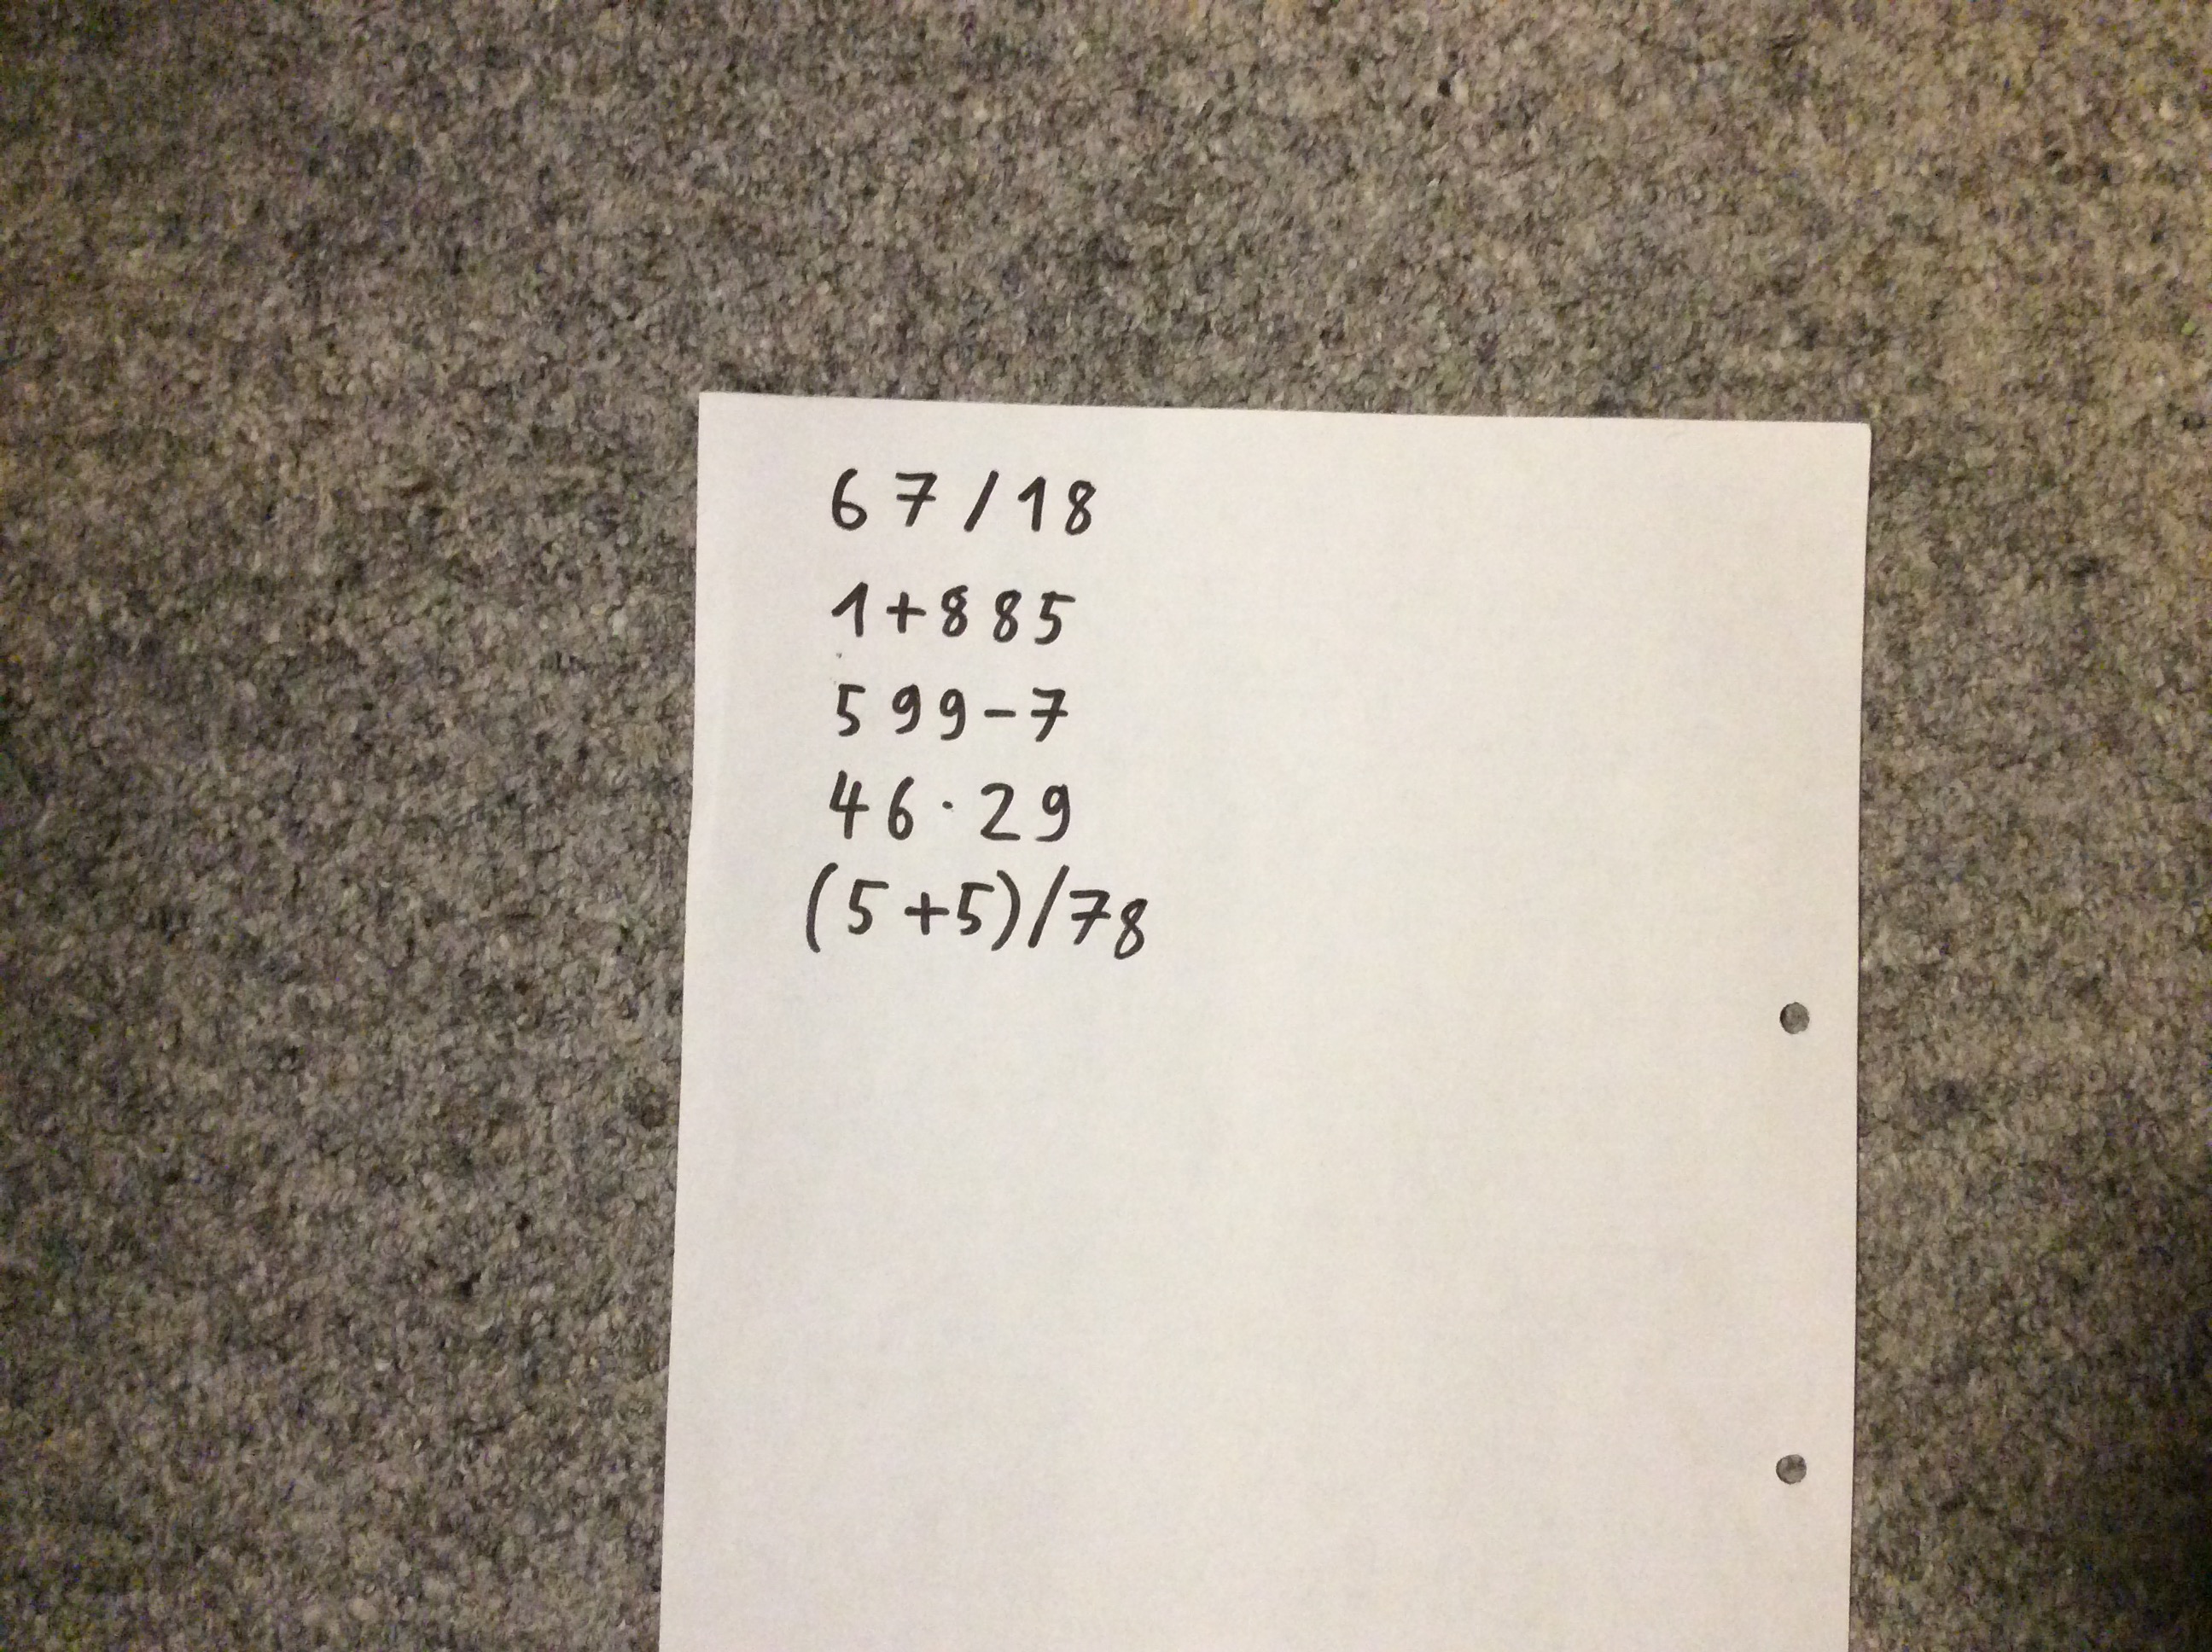 67/18
1+885
599-7
46·29
(5+5)/78